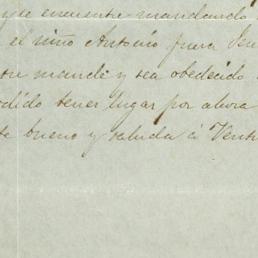 se encuentre mandando
el niño Antonio para
mande y sea obedecido
tener lugar por ahora
bueno y saluda á